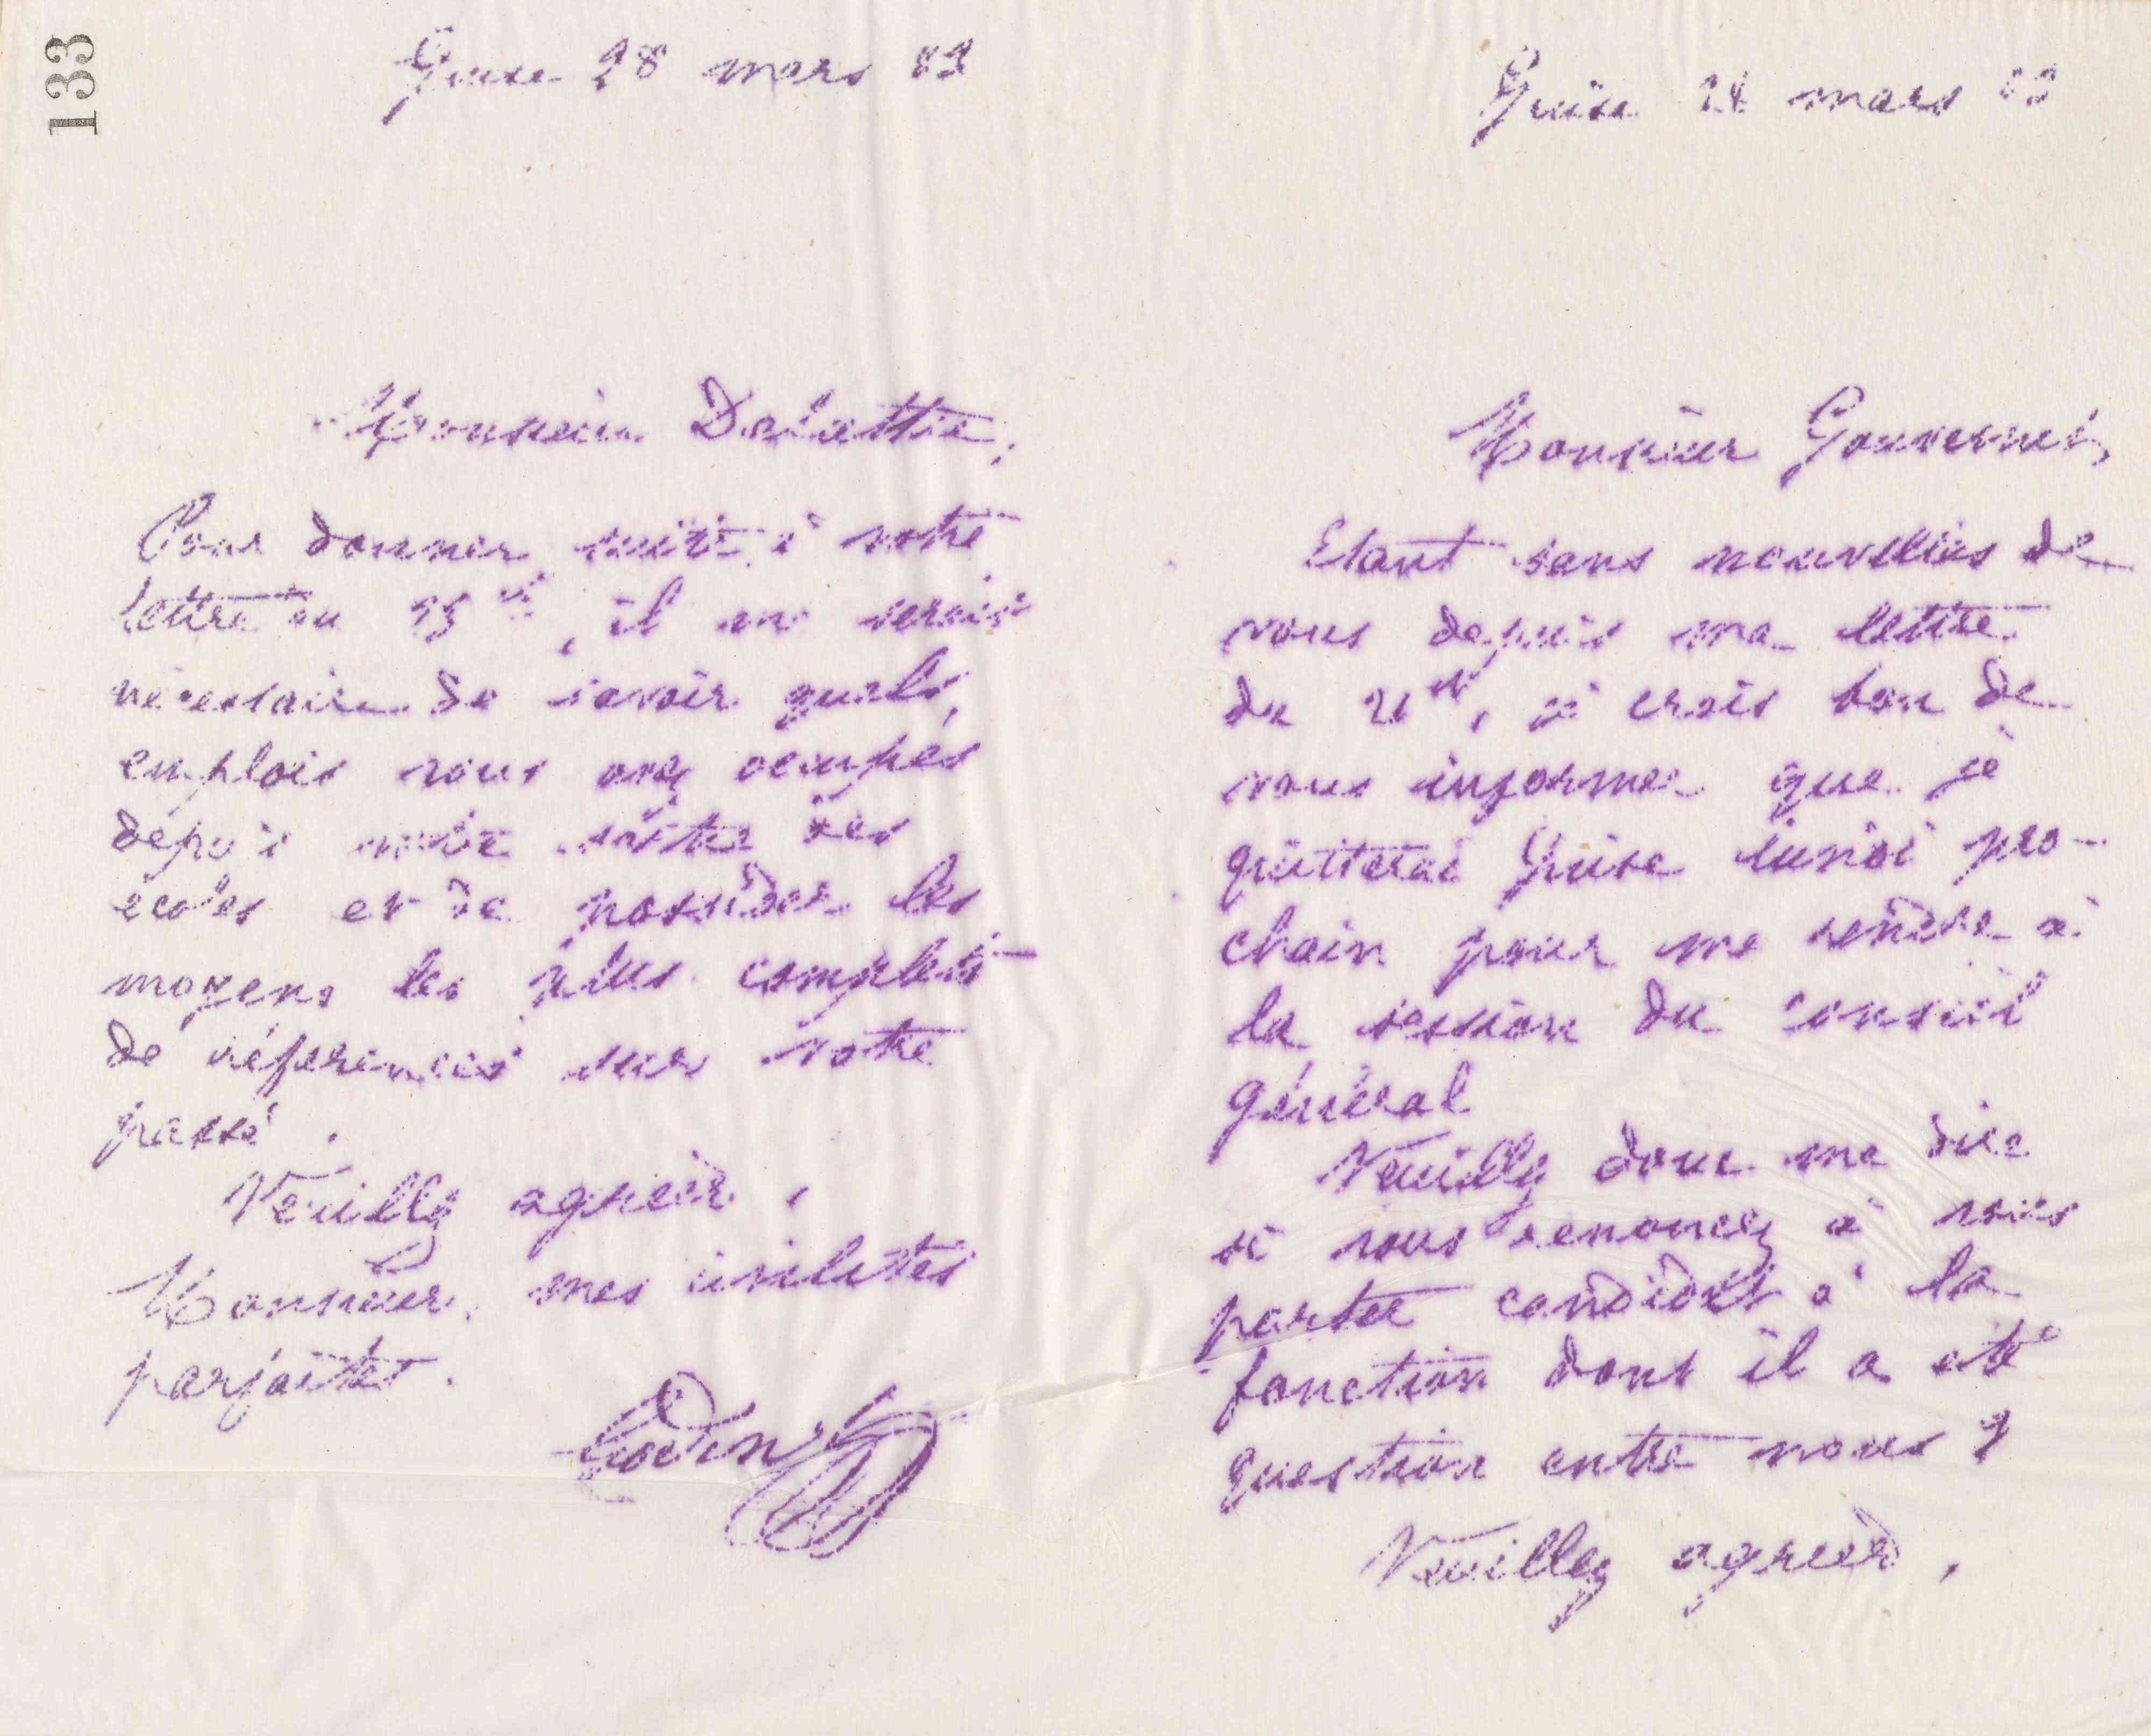 133
Guise 28 mars 83
Monsieur Delattre,
Pour donner suite à votre
lettre du 25 ct, il me serait
nécessaire de savoir quels
emplois vous avez occupés
depuis votre sortie des
écoles et de posséder les
moyens les plus complets
de références sur votre
passé.
Veuillez agréer,
Monsieur, mes civilités
parfaites.
Godin
Guise 28 mars 83
Monsieur Gouverneur,
Etant sans nouvelles de
vous depuis ma lettre
du 21 ct, je crois bon de
vous informer que je
quitterai Guise lundi pro-
chain pour me rendre à
la session du conseil
général
Veuillez donc me dire
si vous renoncez à vous
porter candidat à la
fonction dont il a été
question entre nous ?
Veuillez agréer,